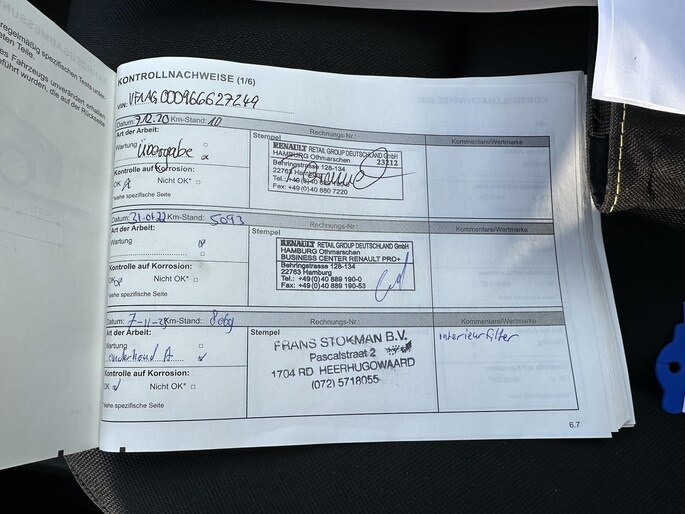 regelmäßig spezifischen Tests unter-
eten Teile.
es Fahrzeugs unverändert erhalten
führt wurden, die auf der Rückseite
KONTROLLNACHWEISE (1/6)
VIN:
Datum: 9.12.20 Km-Stand: 10
Art der Arbeit:
Stempel
Rechnungs-Nr.:
Kommentare/Wertmarke
Wartung
Übergabe
Kontrolle auf Korrosion:
OK Nicht OK*
*siehe spezifische Seite
RENAULT RETAIL GROUP DEUTSCHLAND GmbH
HAMBURG Othmarschen 23212
Behringstrasse 128-134
22763 Hamburg
Tel.: +49(0)40
Fax: +49(0)40 880 7220
Datum: 31-01-22 Km-Stand: 5093
Art der Arbeit:
Stempel
Rechnungs-Nr.:
Kommentare/Wertmarke
Wartung
Kontrolle auf Korrosion:
OK Nicht OK*
*siehe spezifische Seite
RENAULT RETAIL GROUP DEUTSCHLAND GmbH
HAMBURG Othmarschen
BUSINESS CENTER RENAULT PRO+
Behringstrasse 128-134
22763 Hamburg
Tel.: +49(0)40 889 190-0
Fax: +49(0)40 889 190-53
Datum: 7-11-23 Km-Stand:
Art der Arbeit:
Stempel
Rechnungs-Nr.:
Kommentare/Wertmarke
Wartung
onderhoud A
Kontrolle auf Korrosion:
OK Nicht OK*
*siehe spezifische Seite
FRANS STOKMAN B.V.
Pascalstraat 2
1704 RD HEERHUGOWAARD
(072) 5718055
interieurfilter
6.7